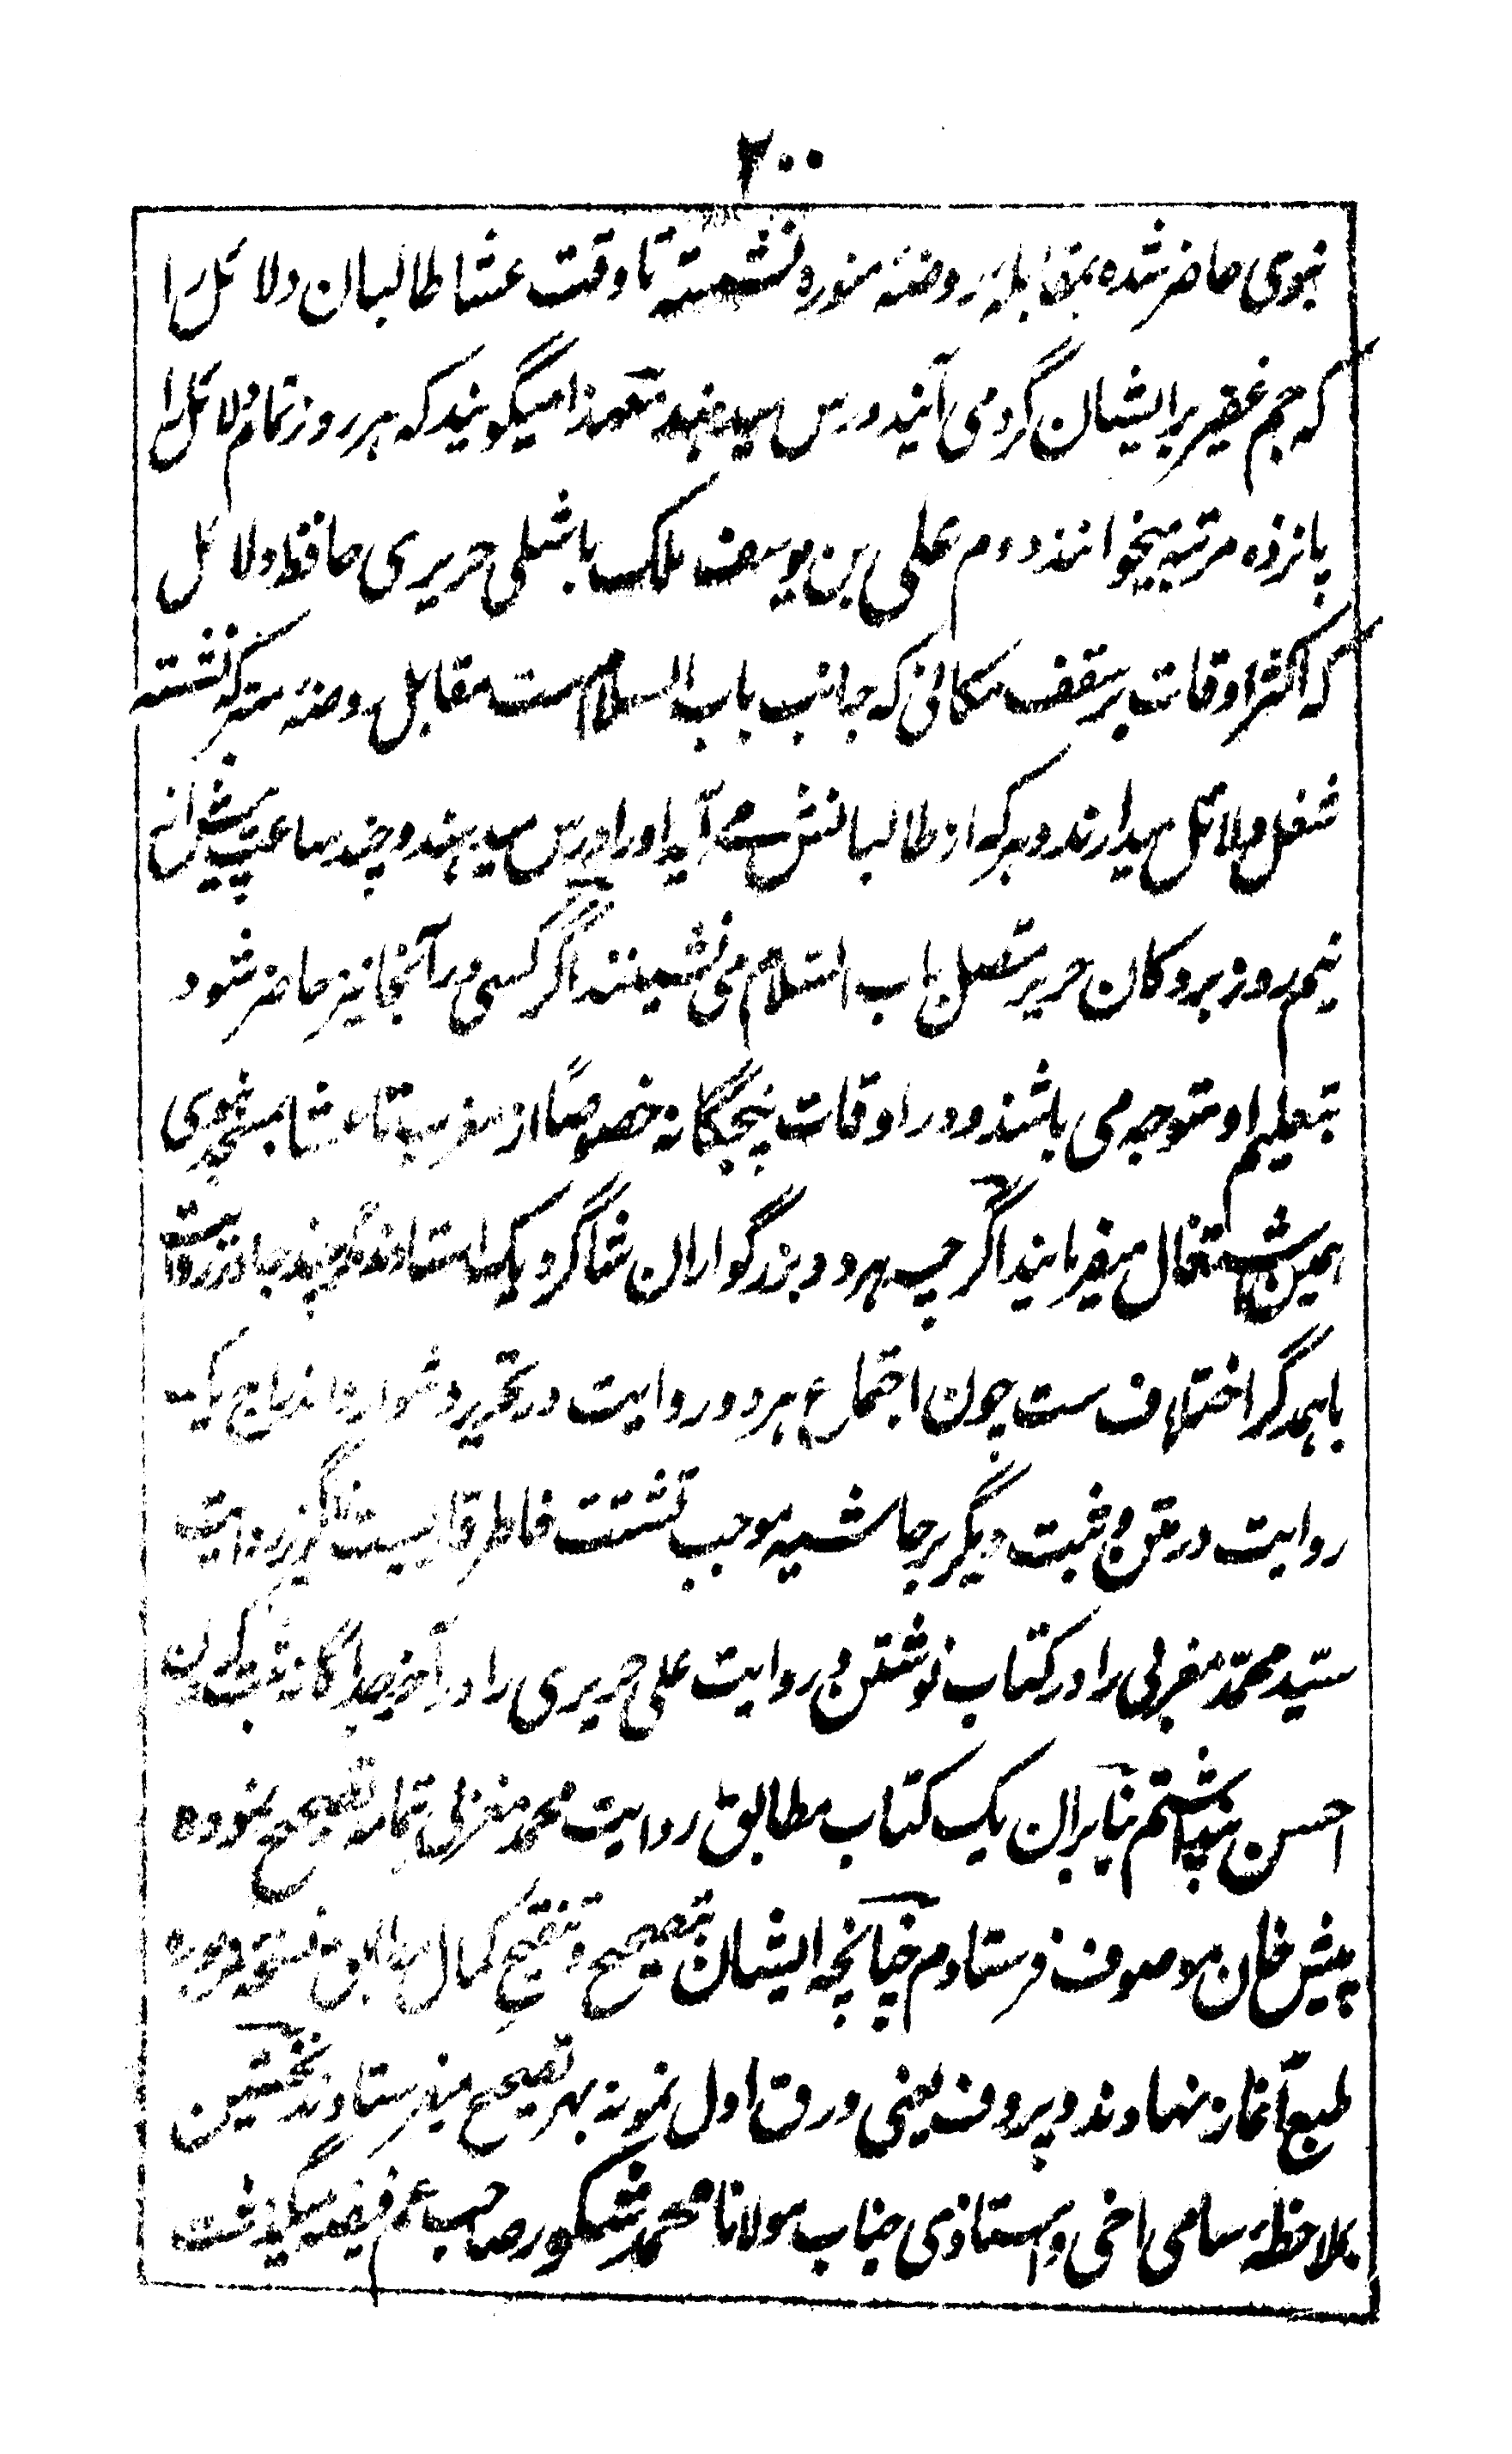 ۲۰۰
نبوی حاضر شده بمقابلہ روضۂ منوره نشسته تا وقت عشا طالبان دلائل را
که جم غفیر بر ایشان گرد می آیند درس میدهند معهذا میگویند که هر روز تمام دلائل را
پانزده مرتبه میخوانند دوم علی بن یوسف ملک باشلی حریری حافظ دلائل
که اکثر اوقات بر سقف مکانی که جانب باب السلام ست مقابل روضۂ متبرکه نشسته
شغل دلائل میدارند و هر که از طالبانش می آید او را درس میدهند و چند ساعت پیش از
نیم روز بر دکان حریر متصل باب السلام می نشینند اگر کسی در آنجا نیز حاضر شود
بتعلیم او متوجه می باشند و در اوقات پنجگانه خصوصاً از مغرب تا عشا بمسجد نبوی
بهمین اشتغال میفرمایند اگرچه هر دو بزرگواران شاگرد یک استادند مگر چند جا در روایت
باهمدگر اختلاف ست چون اجتماع هر دو روایت در تحریر دشوار و اندراج یک
روایت در متن و ثبت دیگر بر حاشیه موجب تشتت خاطر قاریست ناگزیر روایت
سید محمد مغربی را در کتاب نوشتن و روایت علی حریری را در آخر جداگانه ثبت کردن
احسن پنداشتم بنابران یک کتاب مطابق روایت محمد مغربی بتمامه تصحیح نموده
پیش خان موصوف فرستادم چنانچه ایشان بتصحیح و تنقیح کمال مطابق نسخه
طبع آغاز نهادند و پروف یعنی ورق اول نمونه بهر تصحیح میفرستادند نخستین
بملاحظۂ سامی اخی و استاذی جناب مولانا محمد شکور صاحب عم فیضه میگذشت